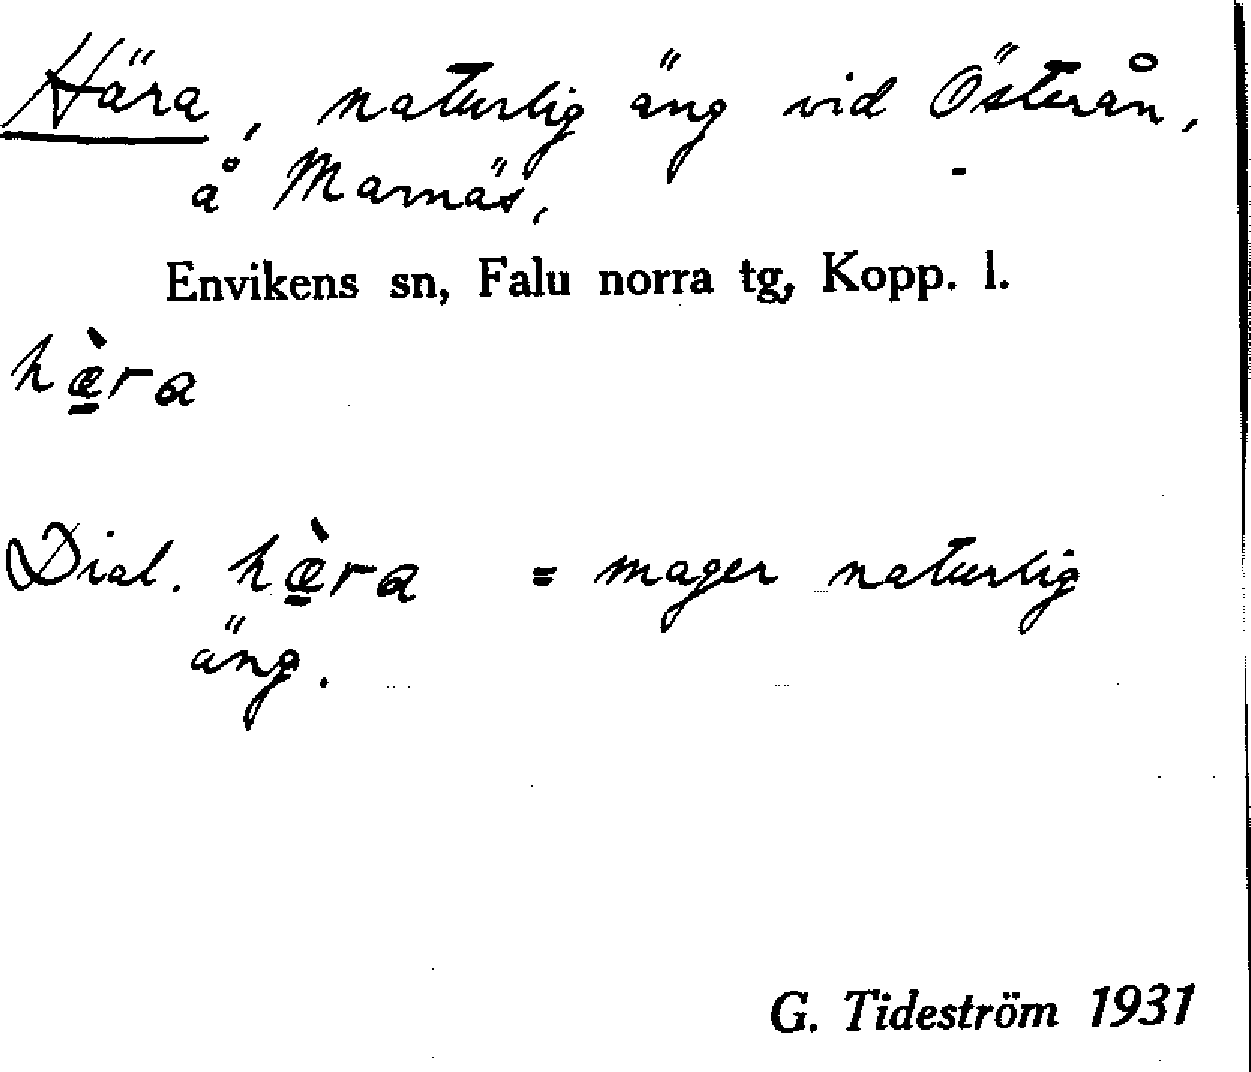 Hära, naturlig äng vid Österån,
å Marnäs,
Envikens sn, Falu norra tg, Kopp. l.
hæ̱̀ra
Dial. hæ̱̀ra = mager naturlig
äng.
G. Tideström 1931